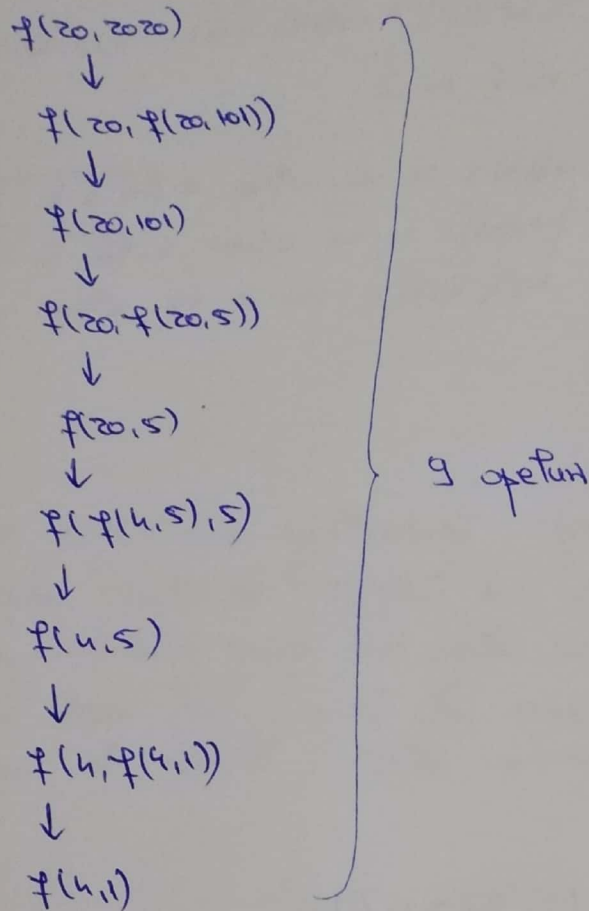 f(20,2020)
↓
f(20, f(20,101))
↓
f(20,101)
↓
f(20, f(20,5))
↓
f(20,5)
↓
f(f(4,5),5)
↓
f(4,5)
↓
f(4, f(4,1))
↓
f(4,1)
9